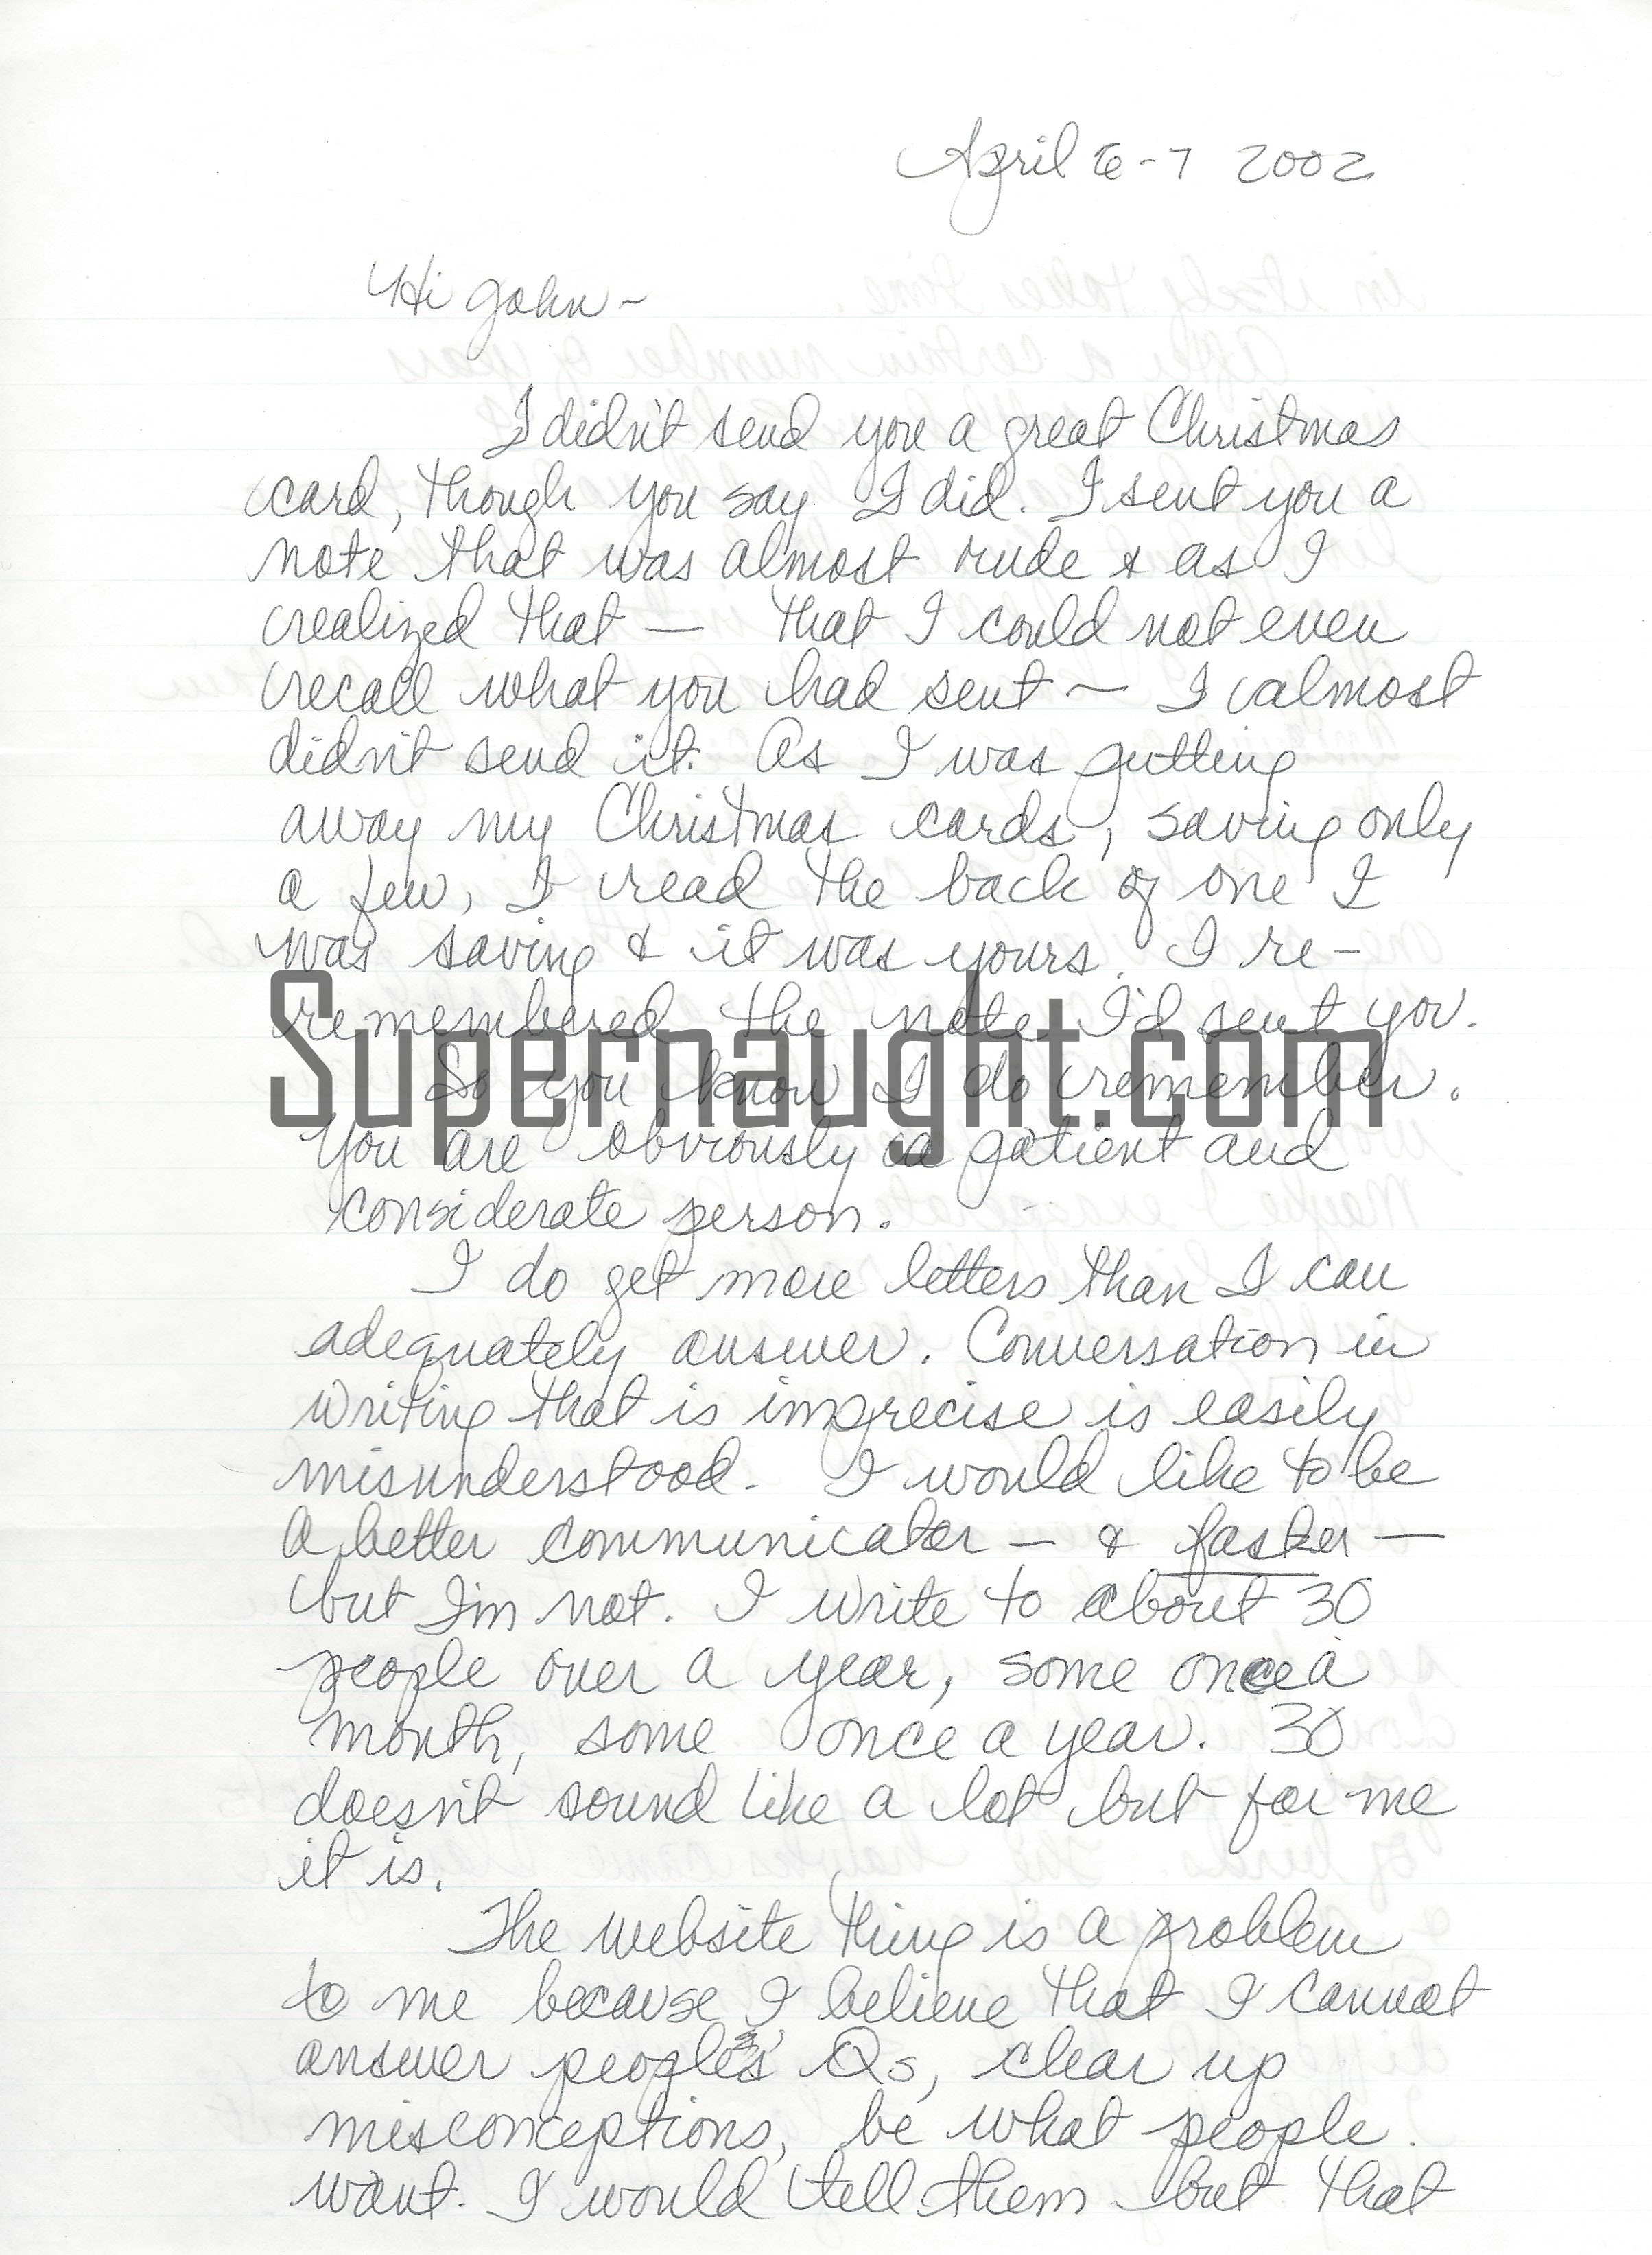 April 6-7 2002
Hi John ~
I didn't send you a great Christmas
card, though you say I did. I sent you a
note that was almost rude & as I
realized that — that I could not even
recall what you had sent ~ I almost
didn't send it. As I was putting
away my Christmas cards, saving only
a few, I read the back of one I
was saving & it was yours. I re-
remembered the note I'd sent you.
Supernaught.com
So you know I do remember.
You are obviously a patient and
considerate person.
I do get more letters than I can
adequately answer. Conversation in
writing that is imprecise is easily
misunderstood. I would like to be
a better communicator — & faster —
but I'm not. I write to about 30
people over a year, some once a
month, some once a year. 30
doesn't sound like a lot but for me
it is.
The website thing is a problem
to me because I believe that I cannot
answer people's Qs, clear up
misconceptions, be what people
want. I would tell them but that